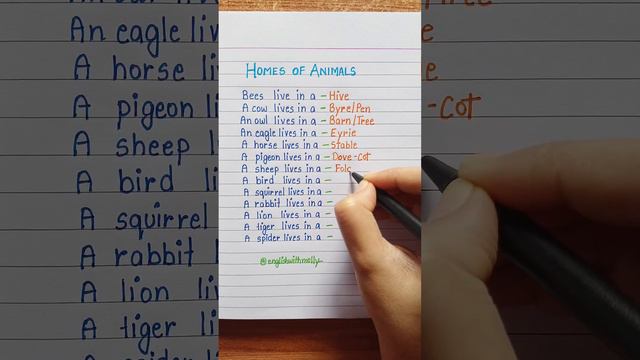 HOMES OF ANIMALS
Bees live in a - Hive
A cow lives in a - Byre/Pen
An owl lives in a - Barn/Tree
An eagle lives in a - Eyrie
A horse lives in a - Stable
A pigeon lives in a - Dove-Cot
A sheep lives in a - Fol
A bird lives in a -
A squirrel lives in a -
A rabbit lives in a -
A lion lives in a -
A tiger lives in a -
A spider lives in a -
@englishwithmolly
An eagle liv
A horse li
A pigeon l
A sheep
A bird l
A squirre
A rabbit
A lion li
A tiger l
e
-Cot